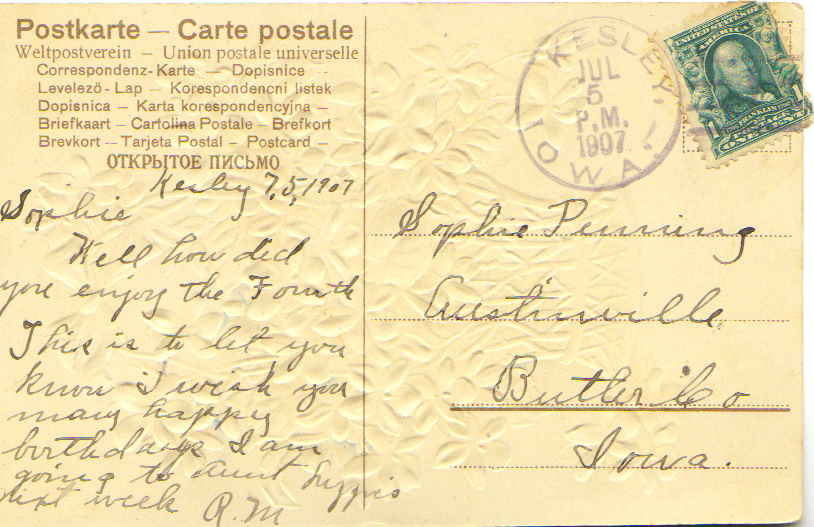 Postkarte — Carte postale
Weltpostverein — Union postale universelle
Correspondenz-Karte — Dopisnice
Levelező-Lap — Korespondencni listek
Dopisnica — Karta korespondencyjna —
Briefkaart — Cartolina Postale — Brefkort
Brevkort — Tarjeta Postal — Postcard —
ОТКРЫТОЕ ПИСЬМО
Kesley 7,5,1907
Sophie
Well how did
you enjoy the Fourth
This is to let you
know I wish you
many happy
birthdays I am
going to Aunt
next week R.M
KESLEY,
IOWA.
JUL
5
P.M.
1907
UNITED STATES OF
AMERICA
FRANKLIN
1 POSTAGE 1
ONE CENT
Sophie Penning
Austinville
Butler Co
Iowa.